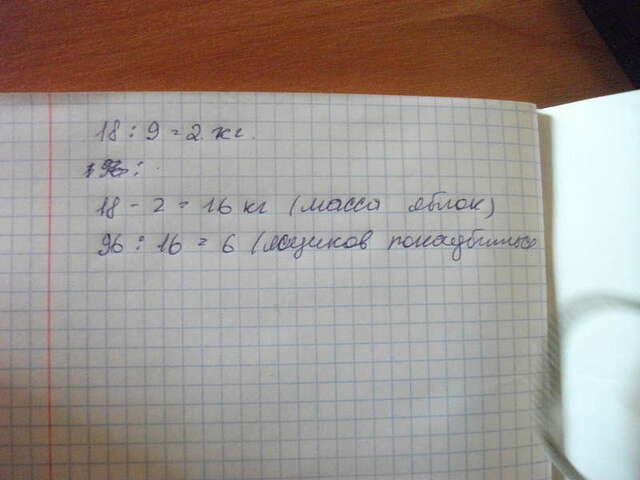 18 : 9 = 2 кг.
18 - 2 = 16 кг (масса яблок)
96 : 16 = 6 (ящиков понадобилось